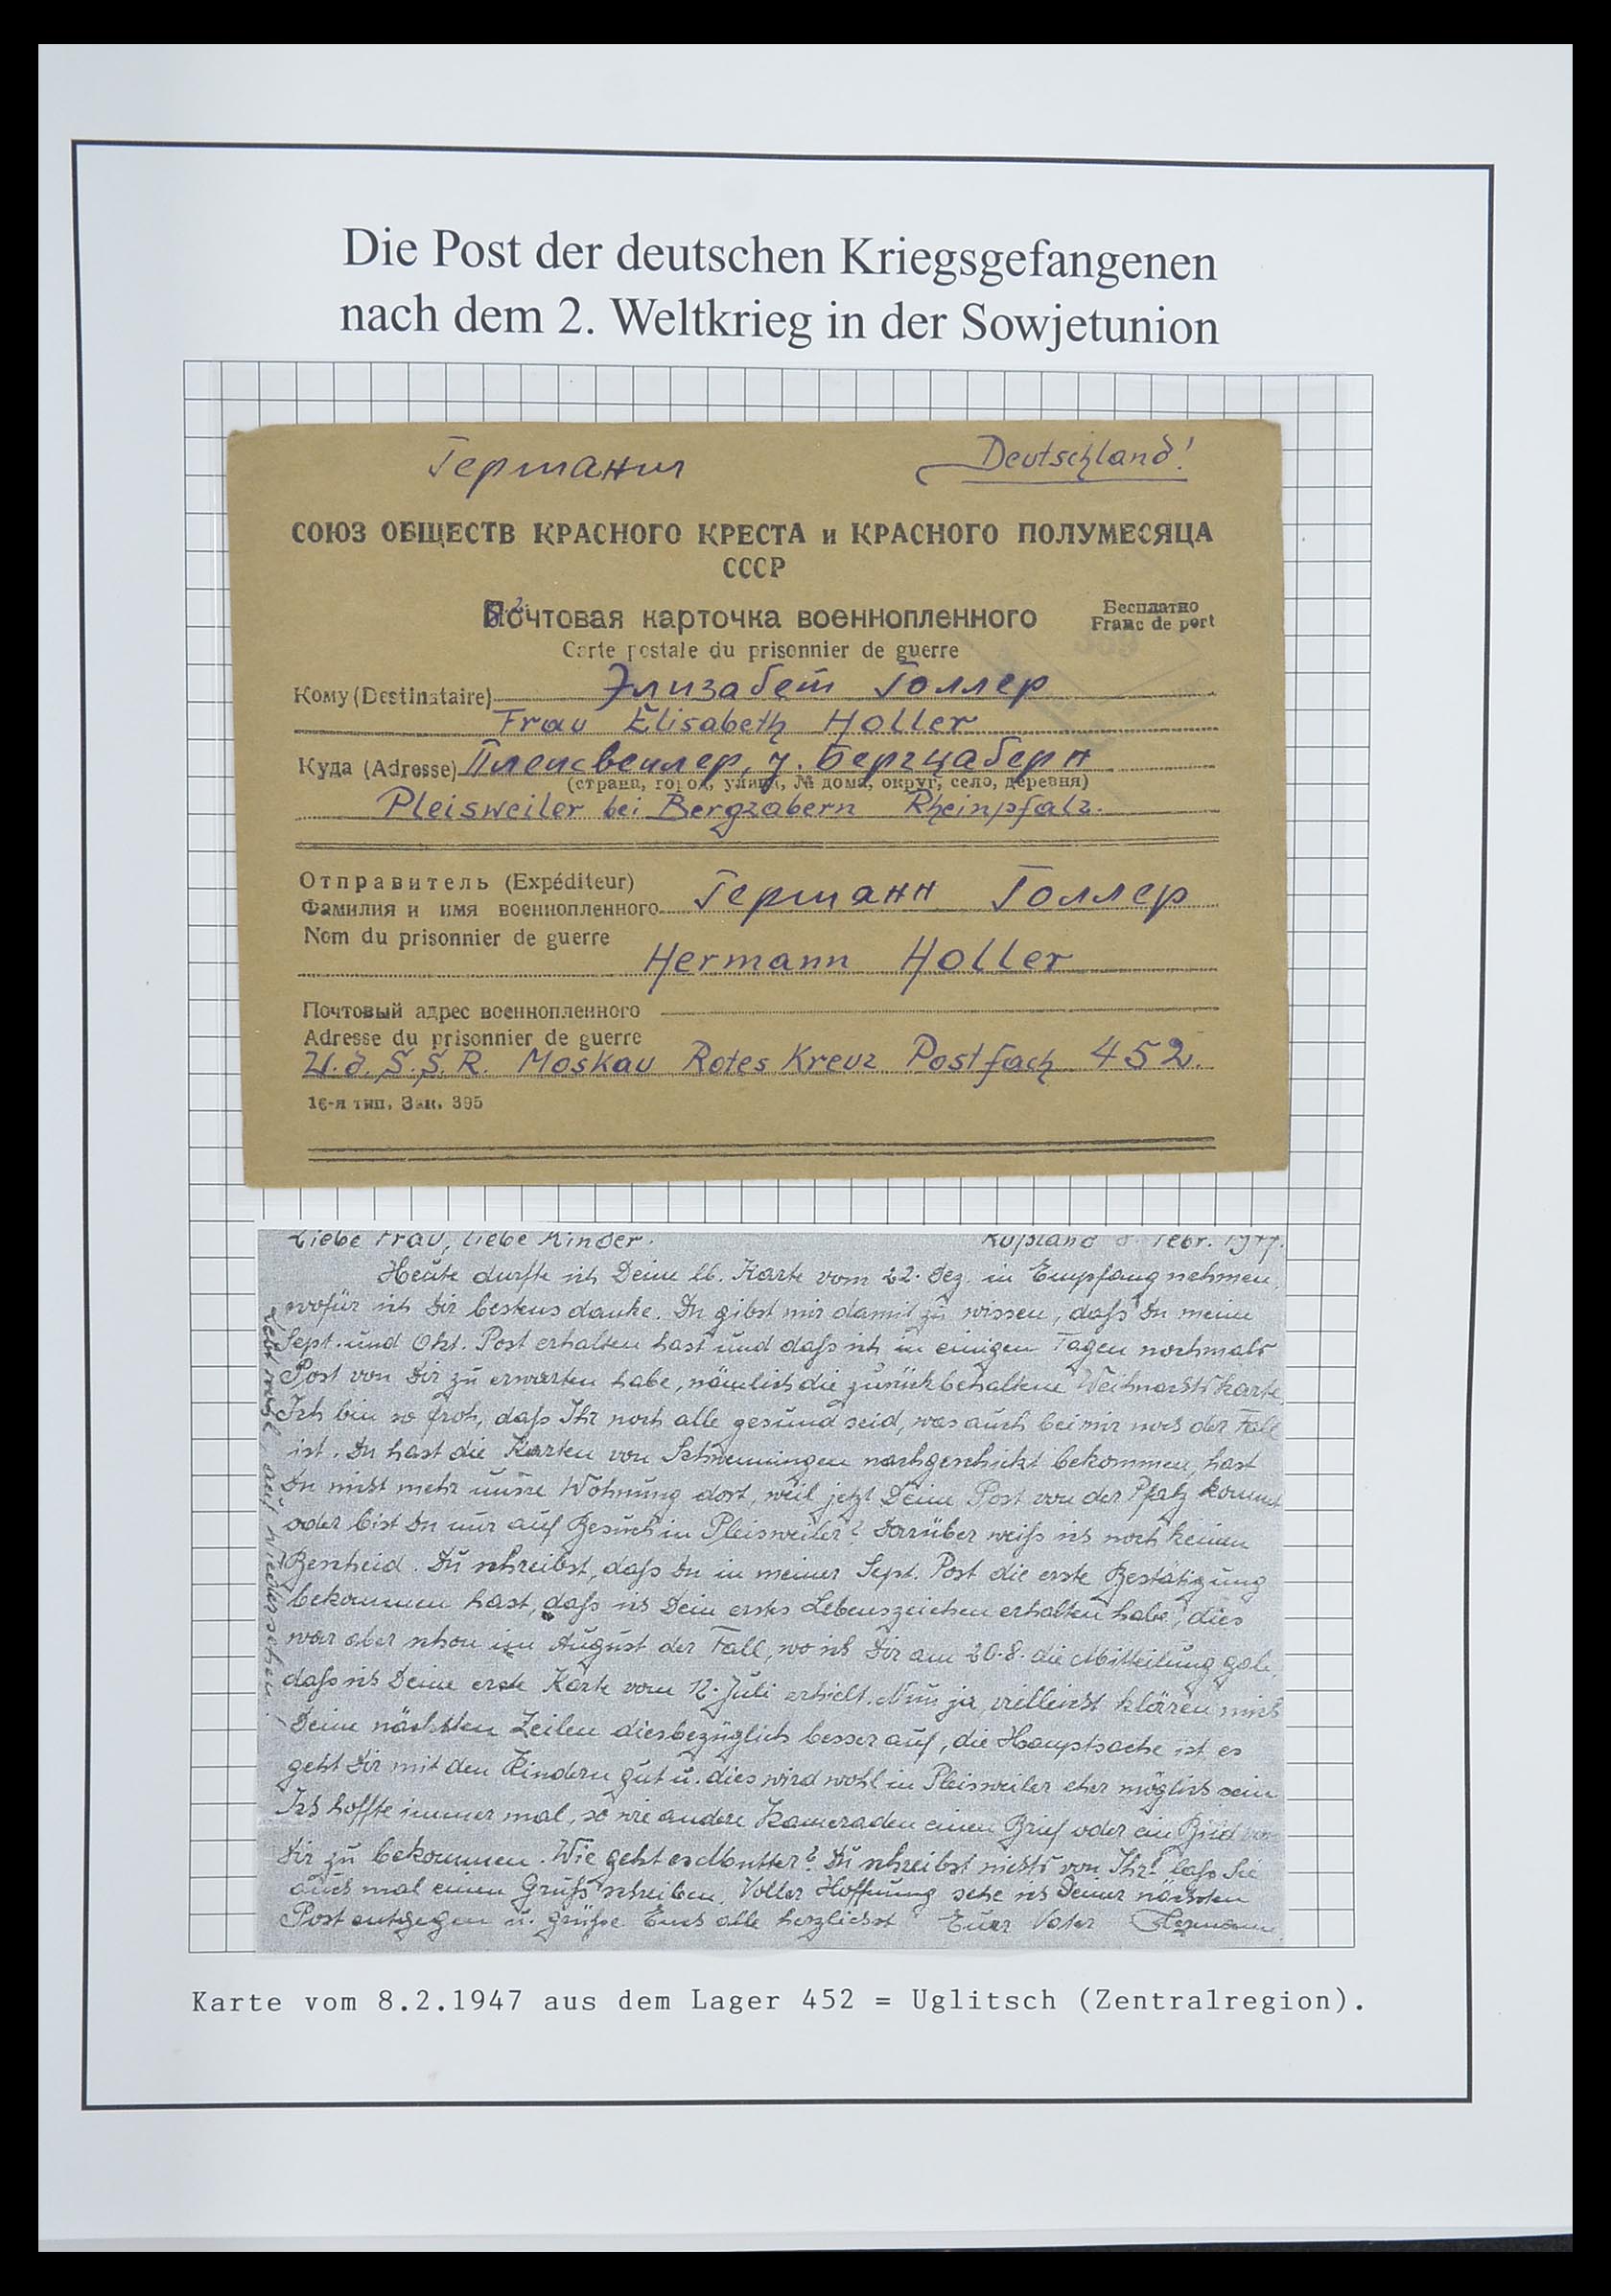 Die Post der deutschen Kriegsgefangenen
nach dem 2. Weltkrieg in der Sowjetunion
Германия
Deutschland!
СОЮЗ ОБЩЕСТВ КРАСНОГО КРЕСТА и КРАСНОГО ПОЛУМЕСЯЦА
СССР
Почтовая карточка военнопленного
Бесплатно
Franc de port
Carte postale du prisonnier de guerre
Кому (Destinataire) Элизабет Голлер
Frau Elisabeth Holler
Куда (Adresse) Плеисвеилер, у. Бергцаберн
(страна, город, улица, № дома, округ, село, деревня)
Pleisweiler bei Bergzabern Rheinpfalz.
Отправитель (Expéditeur)
Фамилия и имя военнопленного Германн Голлер
Nom du prisonnier de guerre
Hermann Holler
Почтовый адрес военнопленного
Adresse du prisonnier de guerre
U.d.S.S.R. Moskau Rotes Kreuz Postfach 452.
16-я тип. Зак. 395
Liebe Frau, liebe Kinder. Rußland 8. Febr. 1947.
Heute durfte ich Deine lb. Karte vom 22. Dez. in Empfang nehmen,
wofür ich Dir bestens danke. Du gibst mir damit zu wissen, daß Du meine
Sept. und Okt. Post erhalten hast und daß ich in einigen Tagen nochmals
Post von Dir zu erwarten habe, nämlich die zurückbehaltene Weihnachtskarte.
Ich bin so froh, daß Ihr noch alle gesund seid, was auch bei mir noch der Fall
ist. Du hast die Karten von Schwenningen nachgeschickt bekommen, hast
Du nicht mehr unsre Wohnung dort, weil jetzt Deine Post von der Pfalz kommt
oder bist Du nur auf Besuch in Pleisweiler? Darüber weiß ich noch keinen
Bescheid. Du schreibst, daß Du in meiner Sept. Post die erste Bestätigung
bekommen hast, daß ich Dein erstes Lebenszeichen erhalten habe, dies
war aber schon im August der Fall, wo ich Dir am 20.8. die Mitteilung gab,
daß ich Deine erste Karte vom 12. Juli erhielt. Nun ja, vielleicht klären mich
Deine nächsten Zeilen diesbezüglich besser auf, die Hauptsache ist es
geht Dir mit den Kindern gut u. dies wird wohl in Pleisweiler eher möglich sein
Ich hoffte immer mal, so wie andere Kameraden einen Brief oder ein Bild von
Dir zu bekommen. Wie geht es Mutter? Du schreibst nichts von Ihr! laß Sie
auch mal einen Gruß schreiben. Voller Hoffnung sehe ich Deiner nächsten
Post entgegen u. grüße Euch alle herzlichst Euer Vater Hermann
Lebt wohl, auf Wiedersehen.
Karte vom 8.2.1947 aus dem Lager 452 = Uglitsch (Zentralregion).